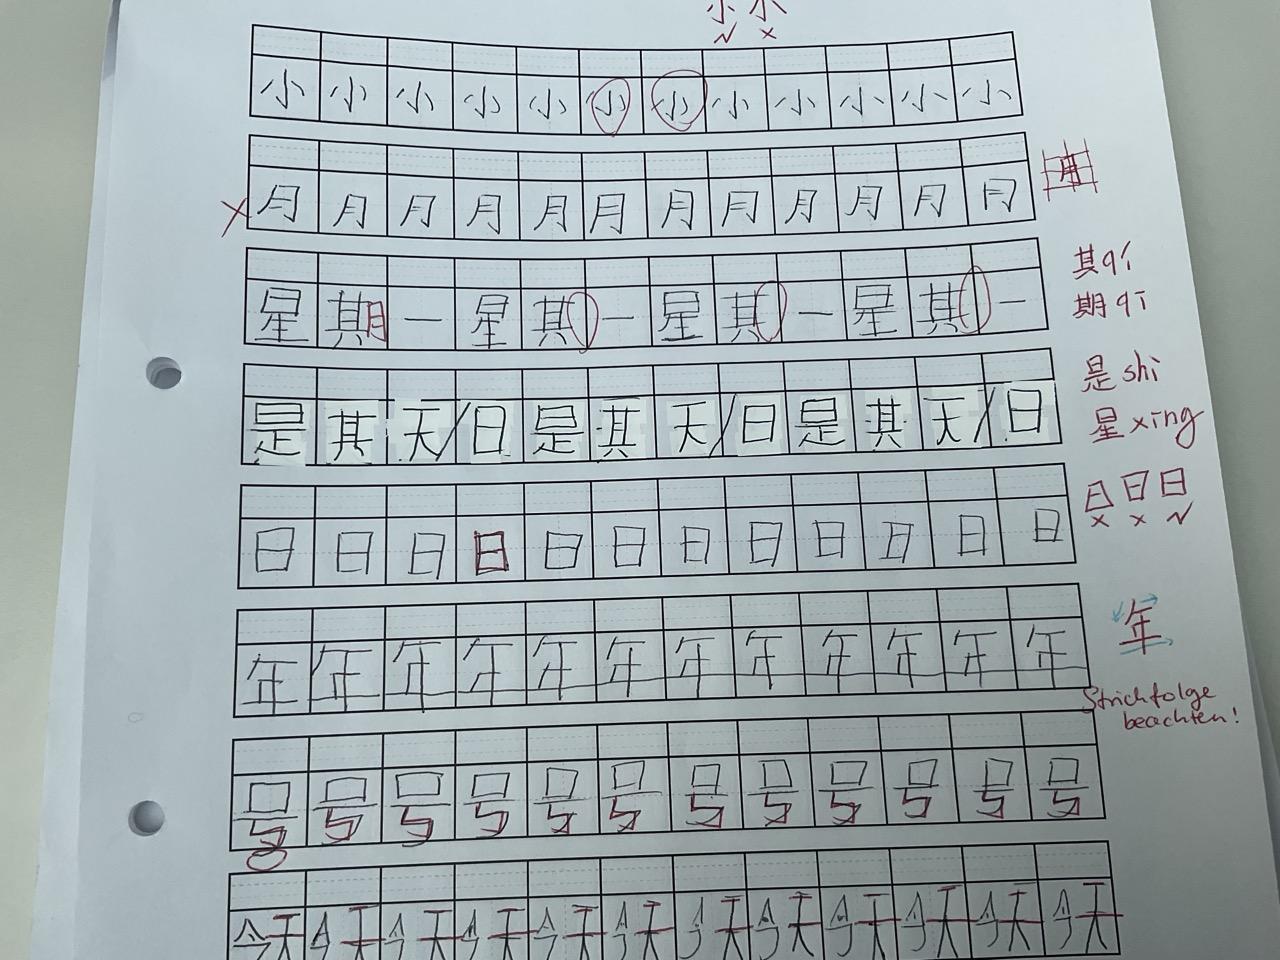 小 小
√ ×
小 小 小 小 小 小 小 小 小 小 小 小
× 月 月 月 月 月 月 月 月 月 月 月 月 月
其 qí
星 期 一 星 其 一 星 其 一 星 其 一
期 qī
是 shi
是 其 天/日 是 其 天/日 是 其 天/日
星 xīng
日 日 日
× × √
日 日 日 日 日 日 日 日 日 日 日 日
年
年 年 年 年 年 年 年 年 年 年 年 年
Strichfolge
beachten!
号 号 号 号 号 号 号 号 号 号 号 号
今天 今天 今天 今天 今天 今天 今天 今天 今天 今天 今天 今天